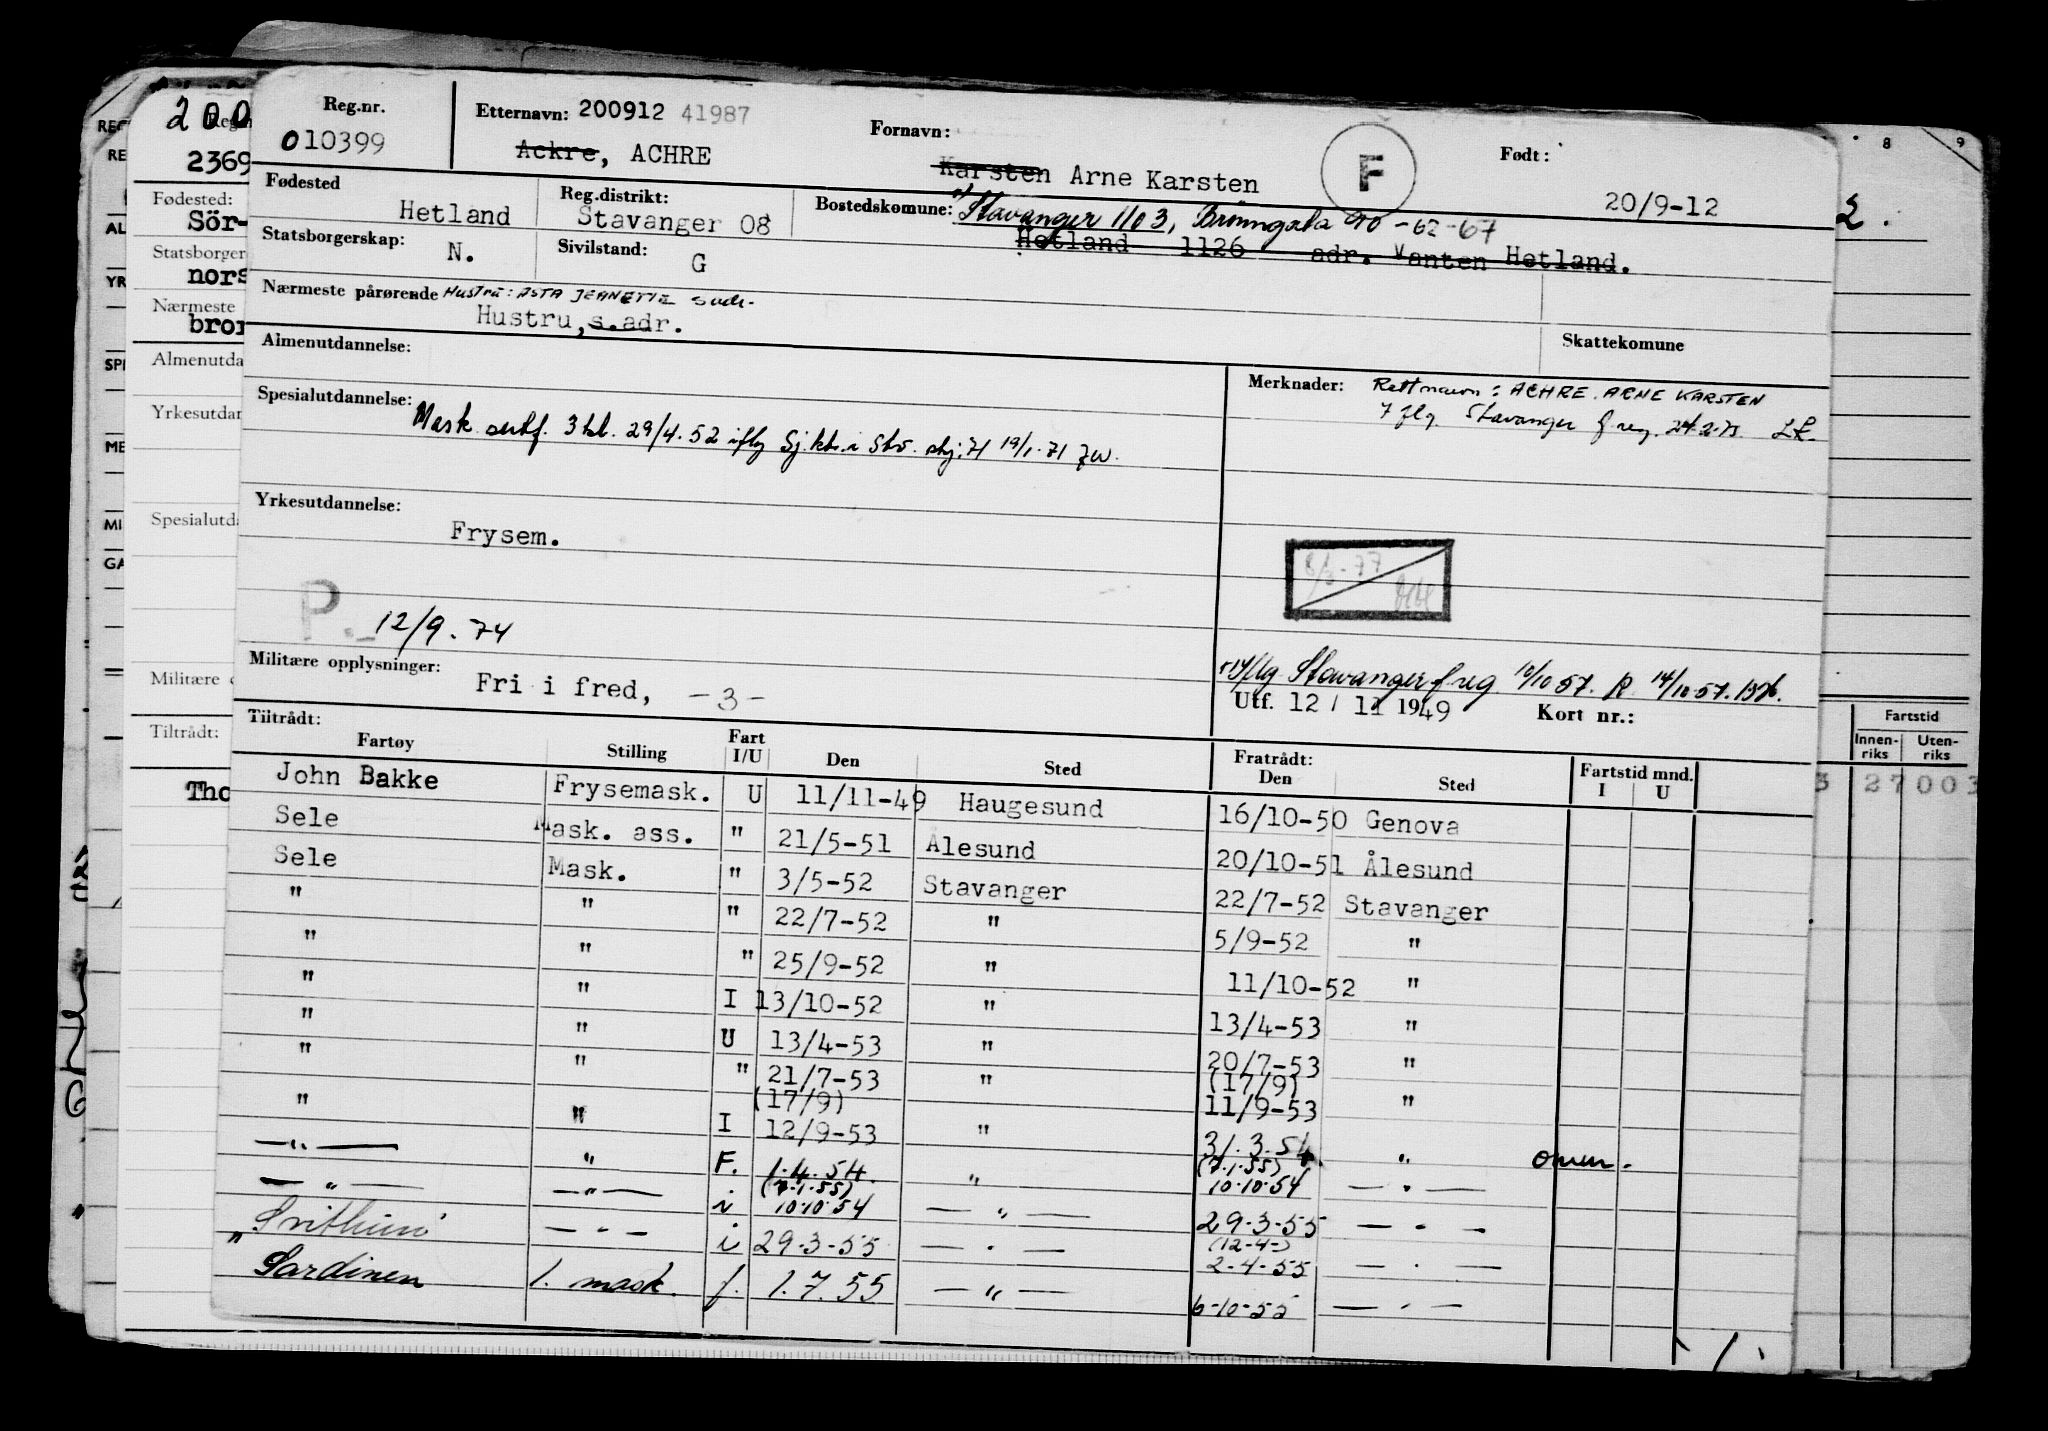 Reg.nr. Etternavn: 200912 41987 Fornavn: F Født:
010399 Ackre, ACHRE Karsten Arne Karsten 20/9-12
Fødested Hetland Reg.distrikt: Stavanger 08 Bostedskomune: Stavanger 1103, -62-67
Hetland 1126 adr. Vanten Hetland.
Statsborgerskap: N. Sivilstand: G
Nærmeste pårørende Hustru: ASTA JEANETTE
Hustru, s.adr.
Skattekomune
Almenutdannelse:
Merknader: Rett navn: ACHRE ARNE KARSTEN
Stavanger
Spesialutdannelse: Mask. sertf. 3 kl. 29/4.52 iflg Sj.ktr. i 19/1-71
Yrkesutdannelse:
Frysem.
8/3-77
P.- 12/9.74
Militære opplysninger: Fri i fred, -3-
Stavanger freg 10/10 57. R 14/10-57.
Utf. 12 / 11 1949 Kort nr.:
Tiltrådt: Fratrådt: Fartstid mnd.
Fartøy Stilling Fart I/U Den Sted Den Sted I U
John Bakke Frysemask. U 11/11-49 Haugesund 16/10-50 Genova
Sele Mask. ass. " 21/5-51 Ålesund 20/10-51 Ålesund
Sele Mask. " 3/5-52 Stavanger 22/7-52 Stavanger
" " " 22/7-52 " 5/9-52 "
" " " 25/9-52 " 11/10-52 "
" " I 13/10-52 " 13/4-53 "
" " U 13/4-53 " 20/7-53 "
" " " 21/7-53 " (17/9) 11/9-53 "
" " I (17/9) 12/9-53 " 31.3.54 "
—"— " F. 1.4.54 " (7.1.55) 10.10.54 —"—
—"— —"— i (7.1.55) 10.10.54 —"— 29.3-55 —"—
"Svithun" —"— i 29.3-55 —"— (12-4-) 2-4-55 —"—
Sardinen 1. mask. f. 1.7.55 —"— 6-10-55 —"—
200
2369
Fødested:
Sör-
Statsborger
nors
Nærmeste
bror
Almenutda
Yrkesutdan
Spesialutda
Militære
Tiltrådt:
Tho
8 9
2.
Fartstid
Innen-riks Uten-riks
3 27003